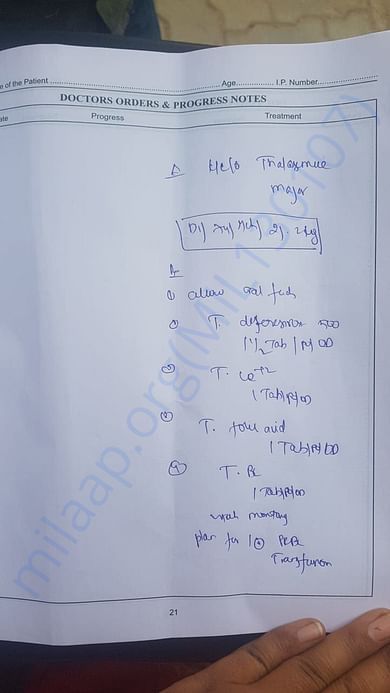 e of the Patient ........ Age ........ I.P. Number ........
DOCTORS ORDERS & PROGRESS NOTES
ate Progress Treatment
Δ K/c/o Thalassmue
major
21.2kg
① allow oral feds
② T. deferasirox 500
1 1/2 Tab | PO | OD
③ T. ca+2
1 Tab|PO|OD
T. folic acid
1 Tab|PO|OD
④ T. BC
1 Tab|PO|OD
plan for 1 PRBC
Transfusion
21
milaap.org(MIL130107)